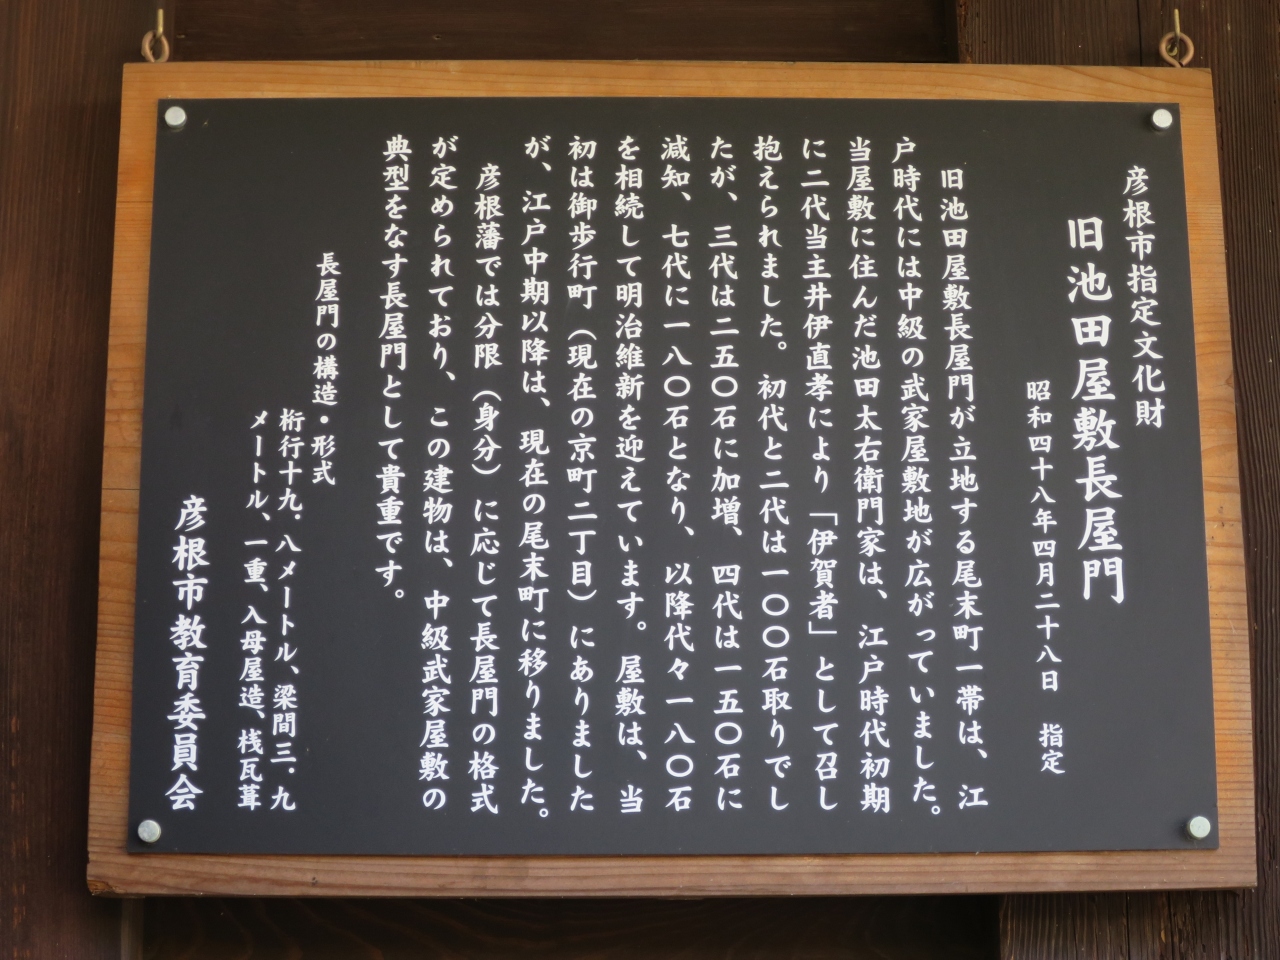 彦根市指定文化財
旧池田屋敷長屋門
昭和四十八年四月二十八日　指定
旧池田屋敷長屋門が立地する尾末町一帯は、江
戸時代には中級の武家屋敷地が広がっていました。
当屋敷に住んだ池田太右衛門家は、江戸時代初期
に二代当主井伊直孝により「伊賀者」として召し
抱えられました。初代と二代は一〇〇石取りでし
たが、三代は二五〇石に加増、四代は一五〇石に
減知、七代に一八〇石となり、以降代々一八〇石
を相続して明治維新を迎えています。屋敷は、当
初は御歩行町（現在の京町二丁目）にありました
が、江戸中期以降は、現在の尾末町に移りました。
彦根藩では分限（身分）に応じて長屋門の格式
が定められており、この建物は、中級武家屋敷の
典型をなす長屋門として貴重です。
長屋門の構造・形式
桁行十九．八メートル、梁間三．九
メートル、一重、入母屋造、桟瓦葺
彦根市教育委員会